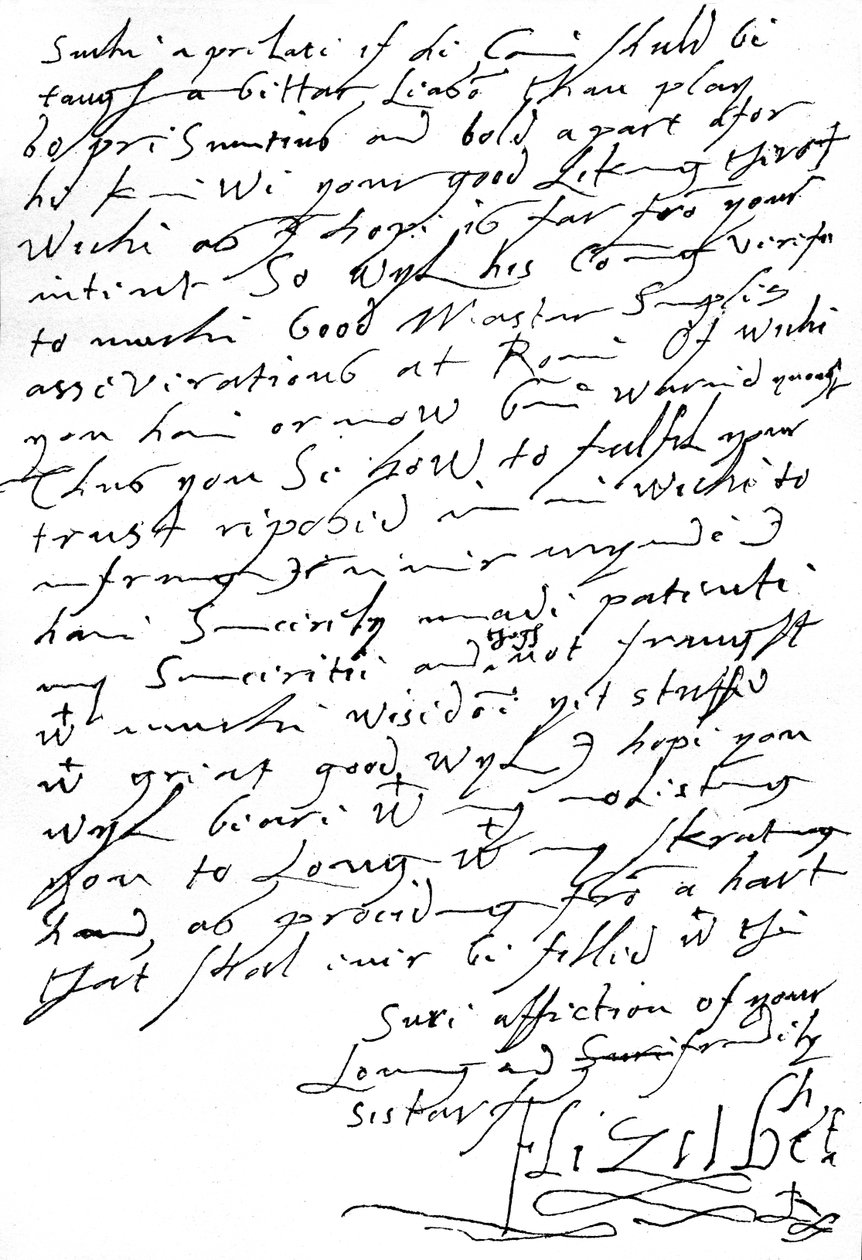 Suche a prelate if he come shuld be
taught a bettar leasõ than play
so presumtius and bold a part afor
he knewe your good liking therof
wiche as I hope is far frõ your
intent So wyl his coming verefie
to muche Good Mastar Simples
asseverations at Rome Of wiche
you have or now bene warned ynough
Thus you se how to fulfil your
trust reposed in me wiche to
infringe I never mynde I
have sincerely made patente
my sinceritie and thogh not fraught
wt muche wisedõe yet stuffed
wt great good wyl I hope you
wyl beare wt my molesting
you to long wt my skrating
hand, as proceding frõ a hart
that shal ever be filled wt the
Sure affection of your
Loving and frendely
sistar
Elizabeth R